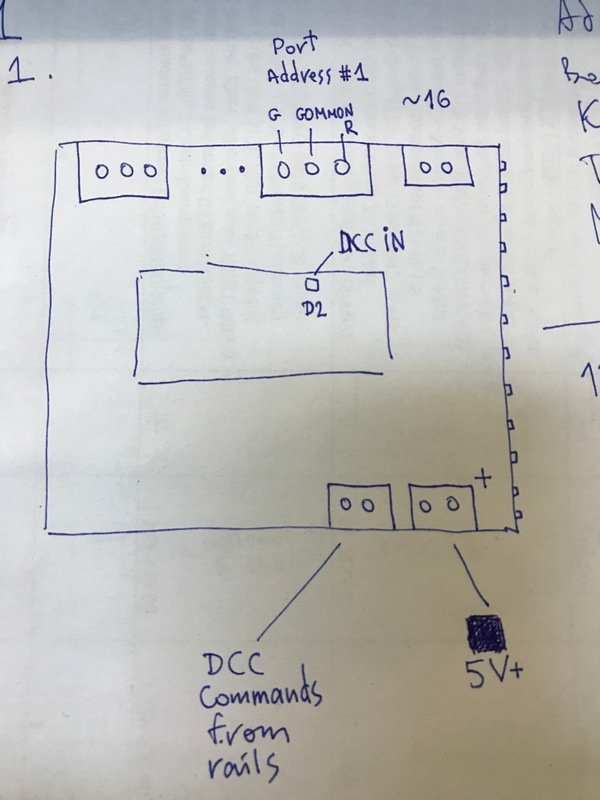 1.
Port
Address #1
G COMMON
R
~16
DCC iN
D2
+
DCC
Commands
from
rails
5V+